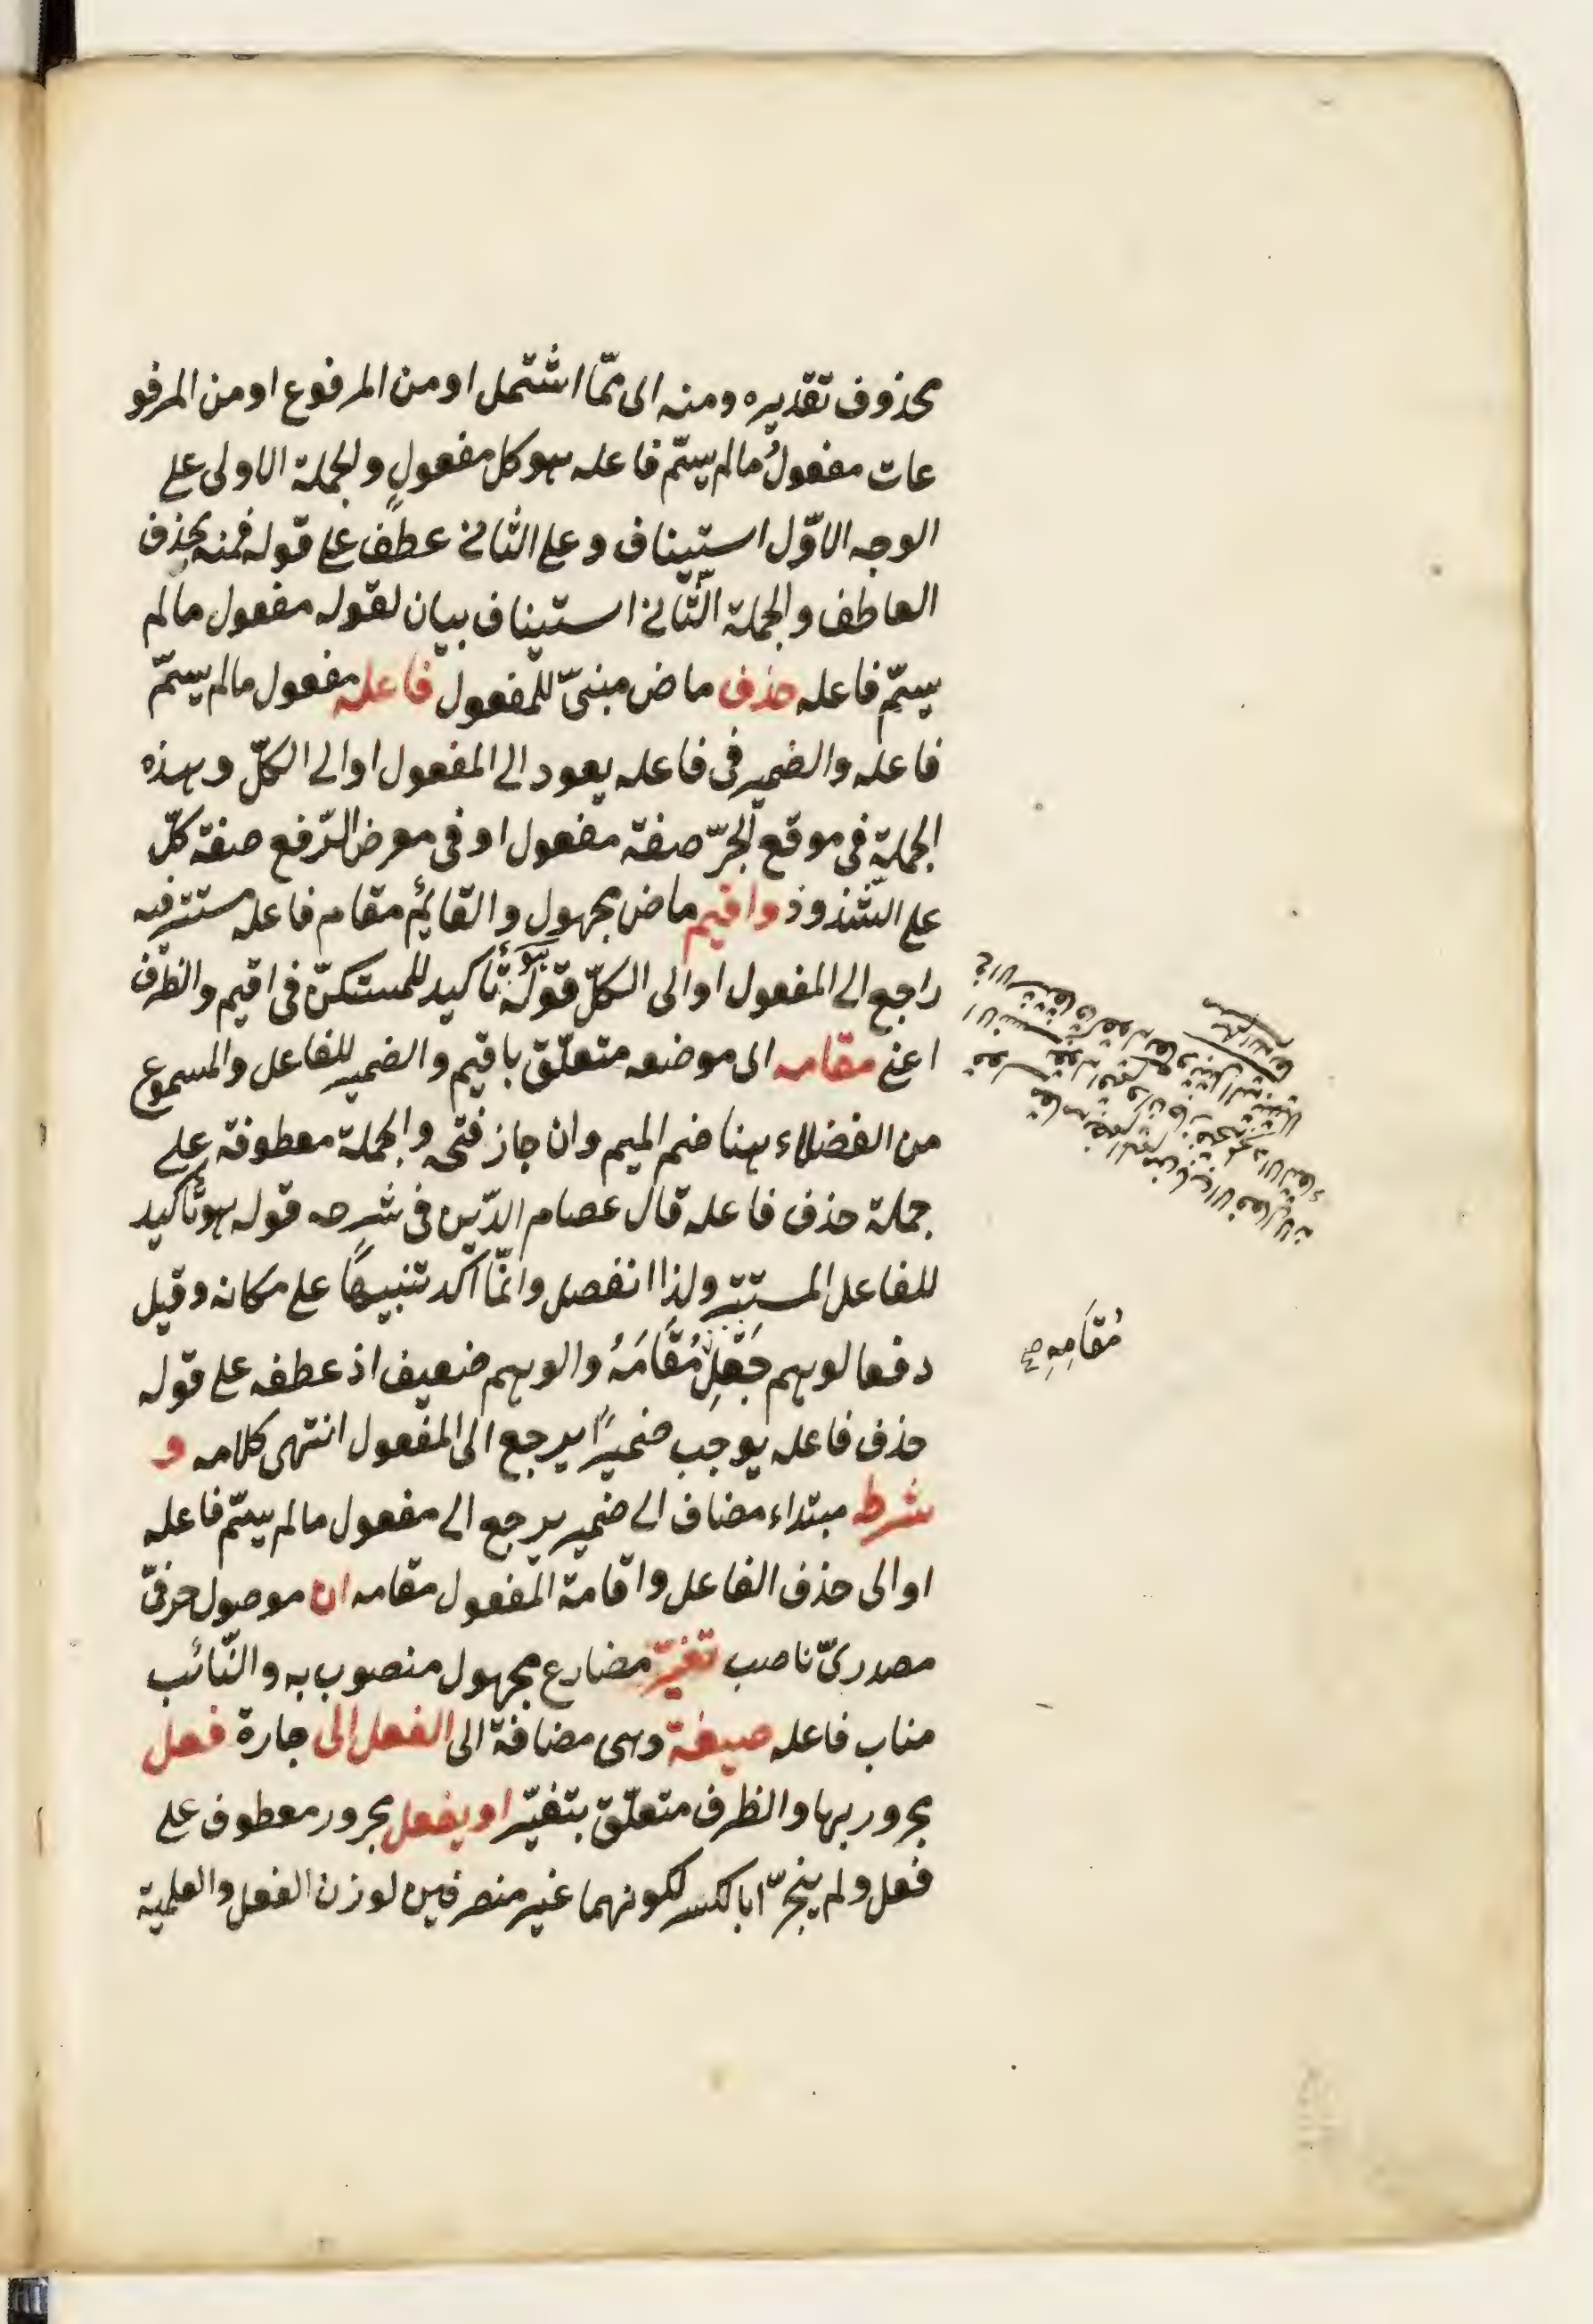 محذوف تقديره ومنه الى ممّا اشتمل او من المرفوع او من المرفو
عات مفعولُ مالم يسمّ فاعله هو كل مفعولٍ والجملة الاولى على
الوجه الاوّل استيناف وعلى الثانى عطف على قوله فمنه بحذف
العاطف والجملة الثّانى استيناف بيان لقوله مفعول مالم
يسمّ فاعله حذف ماض مبنىّ للمفعول فاعله مفعول مالم يسمّ
فاعله والضمير فى فاعله يعود الى المفعول او الى الكلّ وهذه
الجملة فى موقع الجرّ صفة مفعول او فى معرض الرّفع صفة كلّ
على الشّذوذ واقيم ماض مجهول والقائم مقام فاعله مستتر فيه
راجع الى المفعول او الى الكلّ قوله هو تأكيد للمستكنّ فى اقيم والظرف
اعنى مقامه الى موضعه متعلّق باقيم والضمير للفاعل والمسموع
من الفضلاء هنا ضم الميم وان جاز فتحه والجملة معطوفة على
جملة حذف فاعله قال عصام الدّين فى شرحه قوله هو تأكيد
للفاعل المستتر ولذا انفصل وانّما اكد تنبيهاً على مكانه وقيل
دفعا لوهم جَعْلِ مُقَامَهُ والوهم ضعيف اذ عطفه على قوله
حذف فاعله يوجب ضميرًا يرجع الى المفعول انتهى كلامه و
شرطه مبتداء مضاف الى ضمير يرجع الى مفعول مالم يسمّ فاعله
او الى حذف الفاعل واقامة المفعول مقامه ان موصول حرفىّ
مصدرىّ ناصب تغيّر مضارع مجهول منصوب به والنّائب
مناب فاعله صيغة وهى مضافة الى الفعل الى جارة فعل
مجرور بها والظرف متعلّق بتغيّر او يفعل مجرور معطوف على
فعل ولم ينجرّا بالكسر لكونهما غير منصرفين لوزن الفعل والعلمية
مُقَامِهِ صح